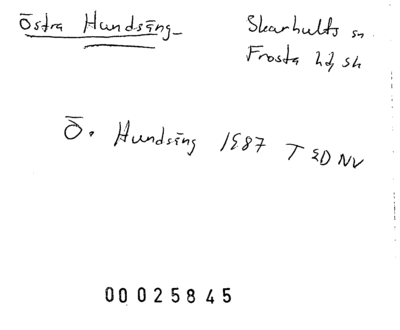 Östra Hundsäng
Skarhults sn
Frosta hd, sk
Ö. Hundsäng 1987 T 2D NV
00025845